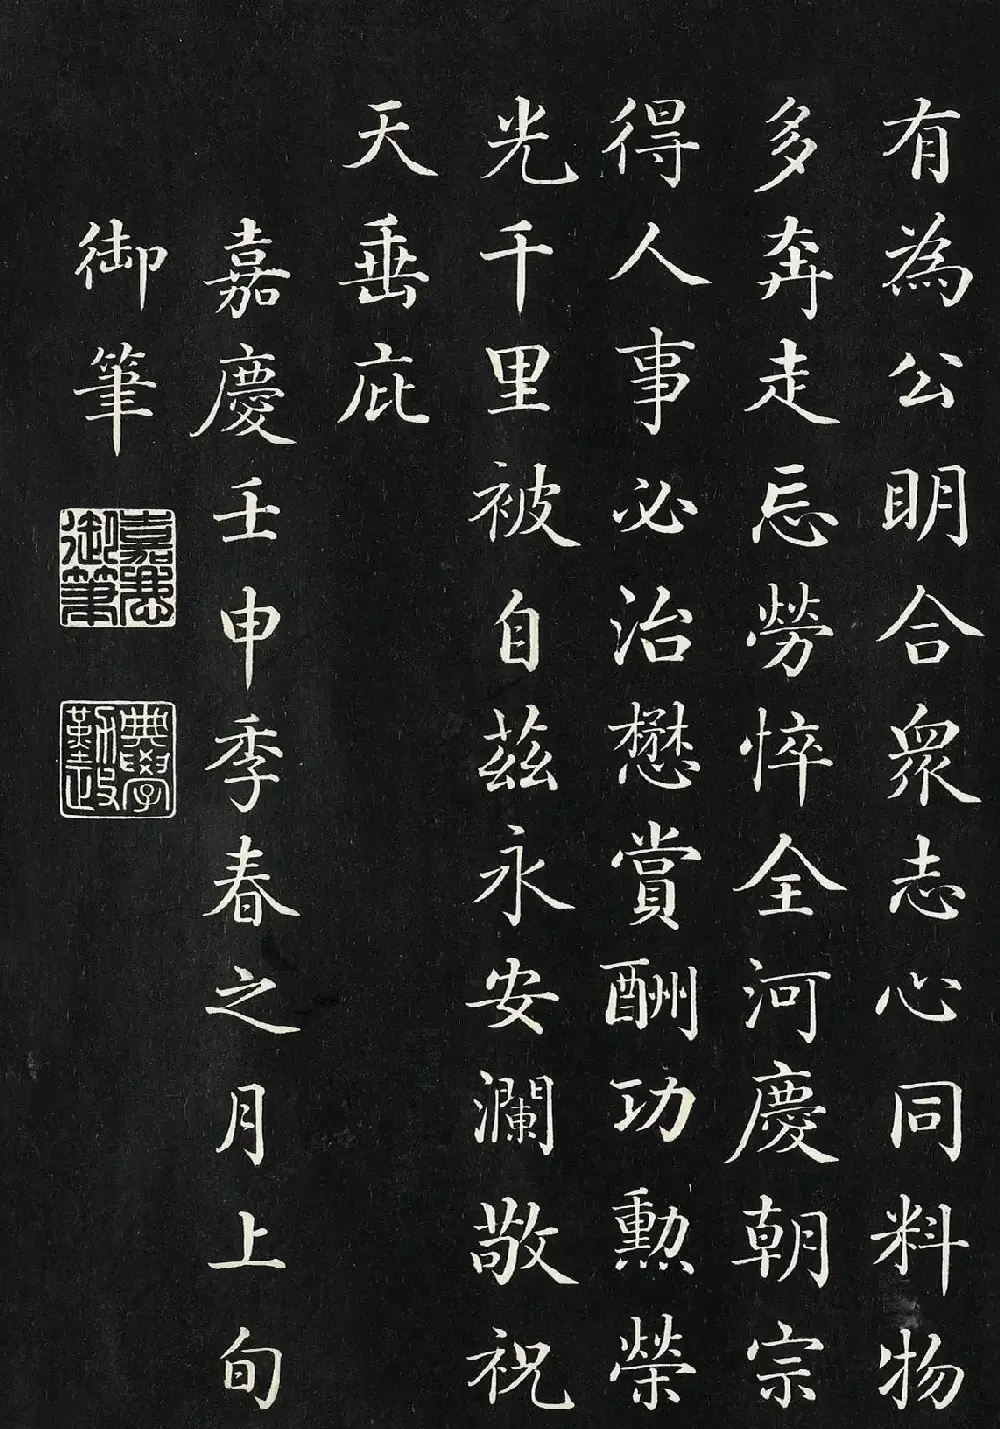 有為公明合衆志心同料物
多奔走忘勞悴全河慶朝宗
得人事必治懋賞酬功勳榮
光千里被自茲永安瀾敬祝
天垂庇
嘉慶壬申季春之月上旬
御筆
嘉慶御筆
典學勤政